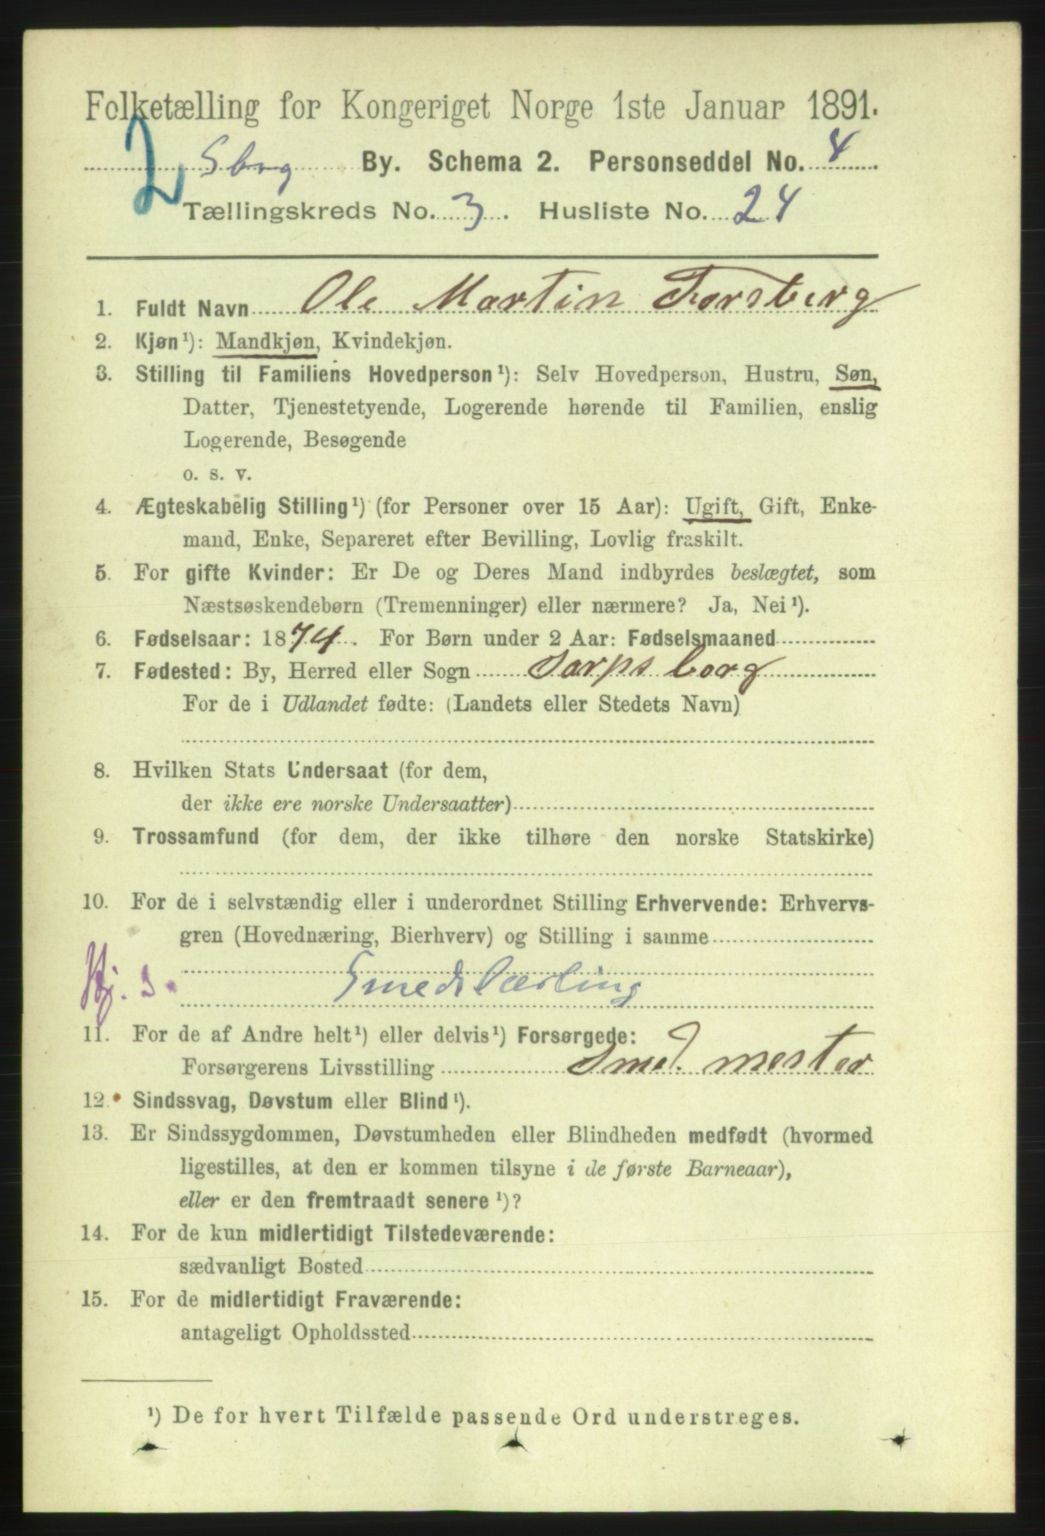 Folketælling for Kongeriget Norge 1ste Januar 1891.
2 Sborg By. Schema 2. Personseddel No. 4
Tællingskreds No. 3. Husliste No. 24
1. Fuldt Navn Ole Martin Forsberg
2. Kjøn¹): Mandkjøn, Kvindekjøn.
3. Stilling til Familiens Hovedperson¹): Selv Hovedperson, Hustru, Søn,
Datter, Tjenestetyende, Logerende hørende til Familien, enslig
Logerende, Besøgende
o. s. v.
4. Ægteskabelig Stilling¹) (for Personer over 15 Aar): Ugift, Gift, Enke-
mand, Enke, Separeret efter Bevilling, Lovlig fraskilt.
5. For gifte Kvinder: Er De og Deres Mand indbyrdes beslægtet, som
Næstsøskendebørn (Tremenninger) eller nærmere? Ja, Nei¹).
6. Fødselsaar: 1874. For Børn under 2 Aar: Fødselsmaaned
7. Fødested: By, Herred eller Sogn Sarpsborg
For de i Udlandet fødte: (Landets eller Stedets Navn)
8. Hvilken Stats Undersaat (for dem,
der ikke ere norske Undersaatter)
9. Trossamfund (for dem, der ikke tilhøre den norske Statskirke)
10. For de i selvstændig eller i underordnet Stilling Erhvervende: Erhvervs-
gren (Hovednæring, Bierhverv) og Stilling i samme
Hj. 3. Smedslærling
11. For de af Andre helt¹) eller delvis¹) Forsørgede:
Forsørgerens Livsstilling Smed. mester
12. Sindssvag, Døvstum eller Blind¹).
13. Er Sindssygdommen, Døvstumheden eller Blindheden medfødt (hvormed
ligestilles, at den er kommen tilsyne i de første Barneaar),
eller er den fremtraadt senere¹)?
14. For de kun midlertidigt Tilstedeværende:
sædvanligt Bosted
15. For de midlertidigt Fraværende:
antageligt Opholdssted
¹) De for hvert Tilfælde passende Ord understreges.